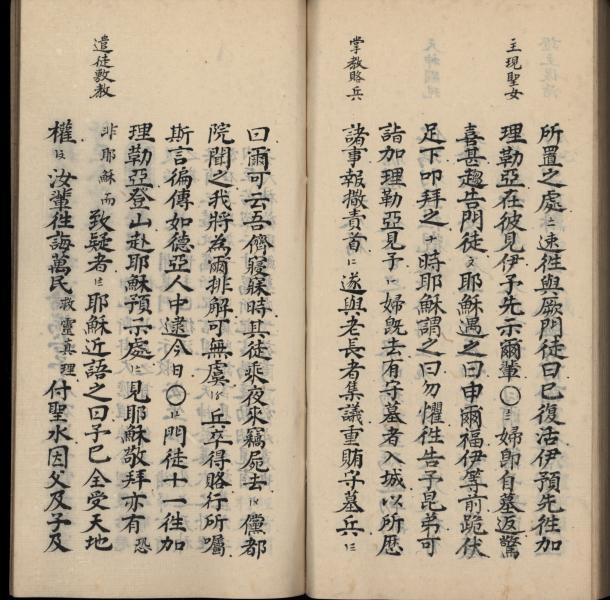 主現聖女
掌教賂兵
所置之處速徃與厥門徒曰巳復活伊預先徃加
理勒亞在彼見伊予先示爾輩〇婦卽自墓返驚
喜甚趨告門徒耶穌遇之曰申爾福伊等前跪伏
足下叩拜之十時耶穌謂之曰勿懼徃告予昆弟可
詣加理勒亞見予婦旣去有守墓者入城以所歷
諸事報撒責首遂與老長者集議重賄守墓兵
遣徒敷教
曰爾可云吾儕寢寐時其徒乘夜來竊屍去儻都
院聞之我將為爾排解可無虞兵卒得賂行所囑
斯言徧傳如德亞人中逮今日〇門徒十一徃加
理勒亞登山赴耶穌預示處見耶穌敬拜亦有恐
非耶穌而致疑者耶穌近語之曰予巳全受天地
權汝輩徃誨萬民救靈真理付聖水因父及子及